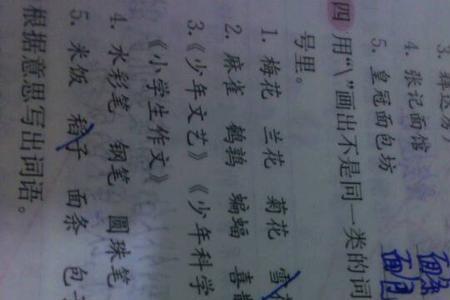 4. 张记面馆
5. 皇冠面包坊
四 用“\”画出不是同一类的词
号里。
1. 梅花 兰花 菊花 雪
2. 麻雀 鹌鹑 蝙蝠 喜鹊
3.《少年文艺》《少年科学
《小学生作文》
4. 水彩笔 钢笔 圆珠笔
5. 米饭 稻子 面条 包
根据意思写出词语。